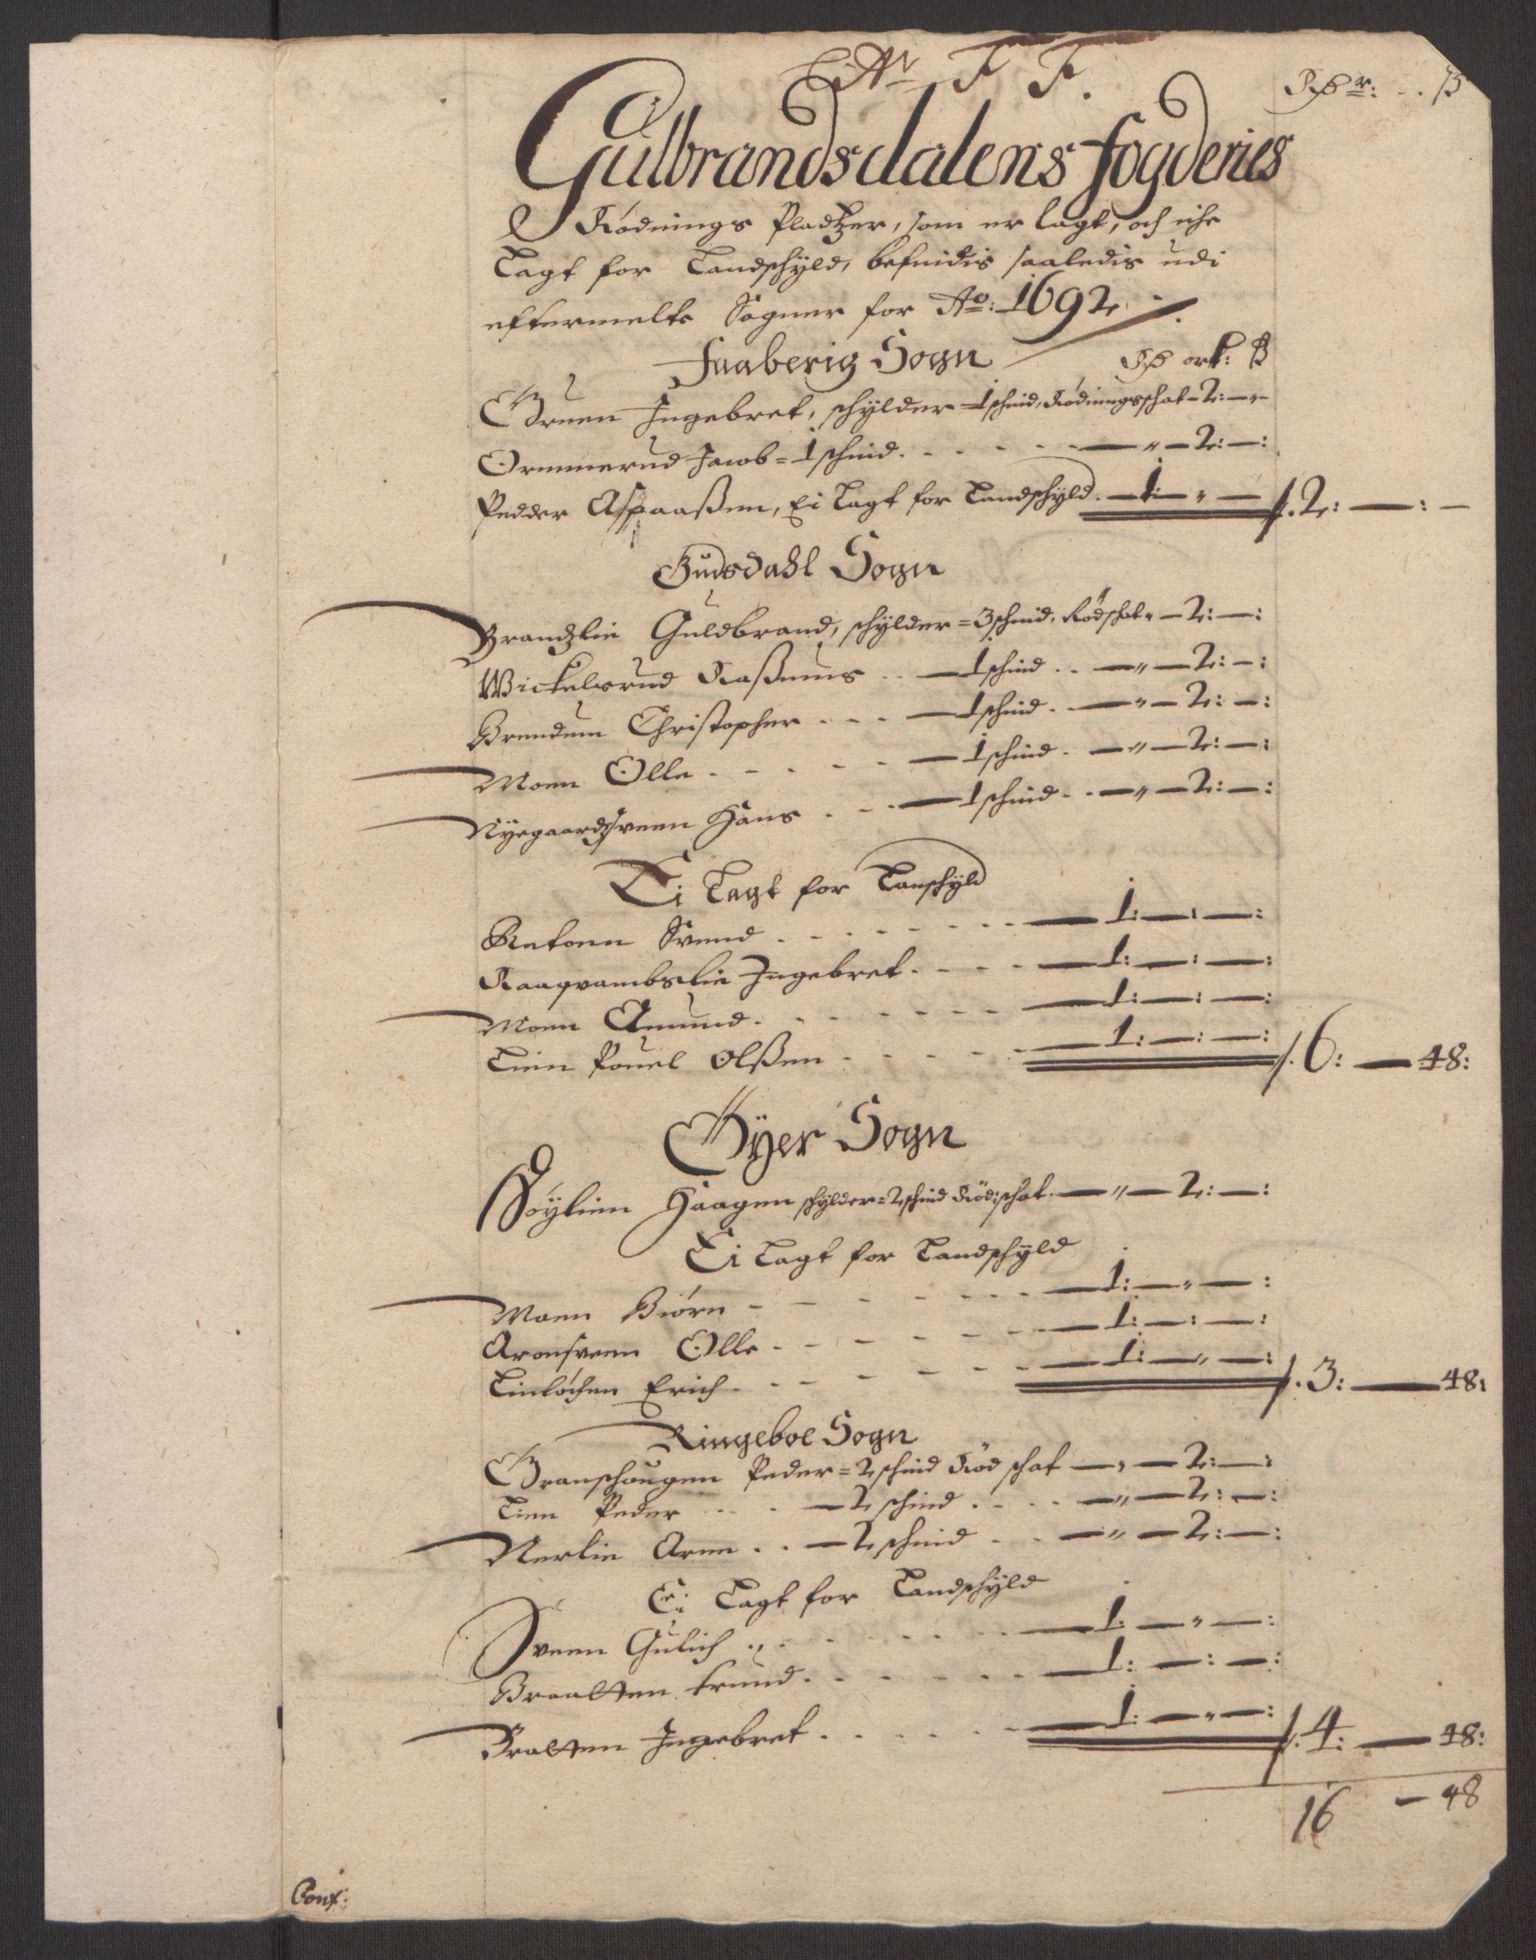 F F.
Rdr: . . ß
Gulbrandsdalens fogderies
Rödnings Pladtzer, som er lagt, och icke
Lagt for Landschÿld, befindis saaledis udi
eftermelte Sogner for Ao: 1692.
Faaberig Sogn Rd ort: ß
Ingebret, schÿlder 1 schind, Rödningsschat - 2: — „ —
Ormmerud Jacob = 1 schind. . . . — „ — 2: — :
Pedder Aspaaßen, Ei Lagt for Landschÿld. — 1: — „ — /. 2: — : —
Gudsdahl Sogn
Brandzlie Guldbrand, schÿlder = 3 schind, Rödschat „ — 2: — :
Wickelsrud Raßmus . . — 1 schind . . — „ — 2: — :
Brendum Christopher . . . — 1 schind . — „ — 2: — :
Moen Olle . . . . . — 1 schind . — „ — 2: — :
Nÿegaardsveen Hans . . . — 1 schind . . — „ — 2: — :
Ei Lagt for Lanschÿld
Svend . . . . . . . — 1: — : — :
Raaqvambslie Ingebret . . . . — 1: — : — :
Moen Amund . . . . . . — 1: — : — :
Lien Pouel Olßen . . . . . — 1: — : — : /. 6: — 48:
Öÿer Sogn
Söÿlien Haagen schÿlder = 2 schind Rödschat. — „ — 2: — :
Ei Lagt for Landschÿld
Moen Biörn - - - - - . . — 1: — „ — :
Aronsveen Olle . - - - - — 1: — : — :
Lienlöchen Erich . . - - - - — 1: — „ — : /. 3: — 48:
Ringeboe Sogn
Granschougen Peder = 2 schind Röd schat — „ — 2: — :
Lien Peder . . . — 2 schind . . . — „ — 2: — :
Nerlie Arne . . — 2 schind . . — „ — 2: — :
Ei Lagt for Landschÿld
Sveen Gulich . . . . . . — 1: — „ — :
Braatten trund . . . . . . — 1: — : — :
Bratten Ingebret . . . . . — 1: — „ — : /. 4: — 48:
16 — 48
Conf: